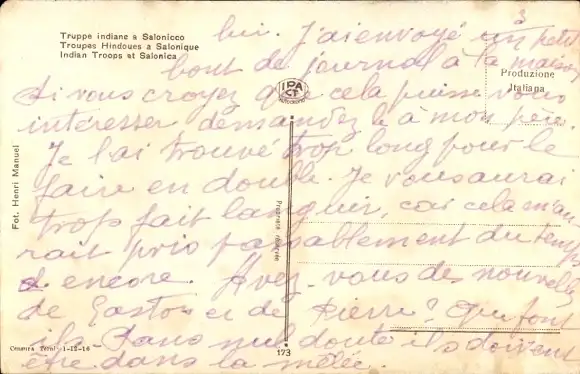 Truppe indiane a Salonicco
Troupes Hindoues a Salonique
Indian Troops at Salonica
3
lui. J'ai envoyé un petit
bout de journal à la maison
Si vous croyez que cela puisse vous
intéresser demandez le à mon père.
Je l'ai trouvé trop long pour le
faire en double. Je vous aurai
trop fait languir, car cela m'au
rait pris passablement du temps
et encore. Avez-vous des nouvelles
de Gaston et de Pierre? Que font
ils. Sans nul doute ils doivent
être dans la mêlée.
IPA
CT
AUTOCROMO
Produzione
Italiana
Fot. Henri Manuel
Proprietà riservata
Censura Terni 1-12-16
173